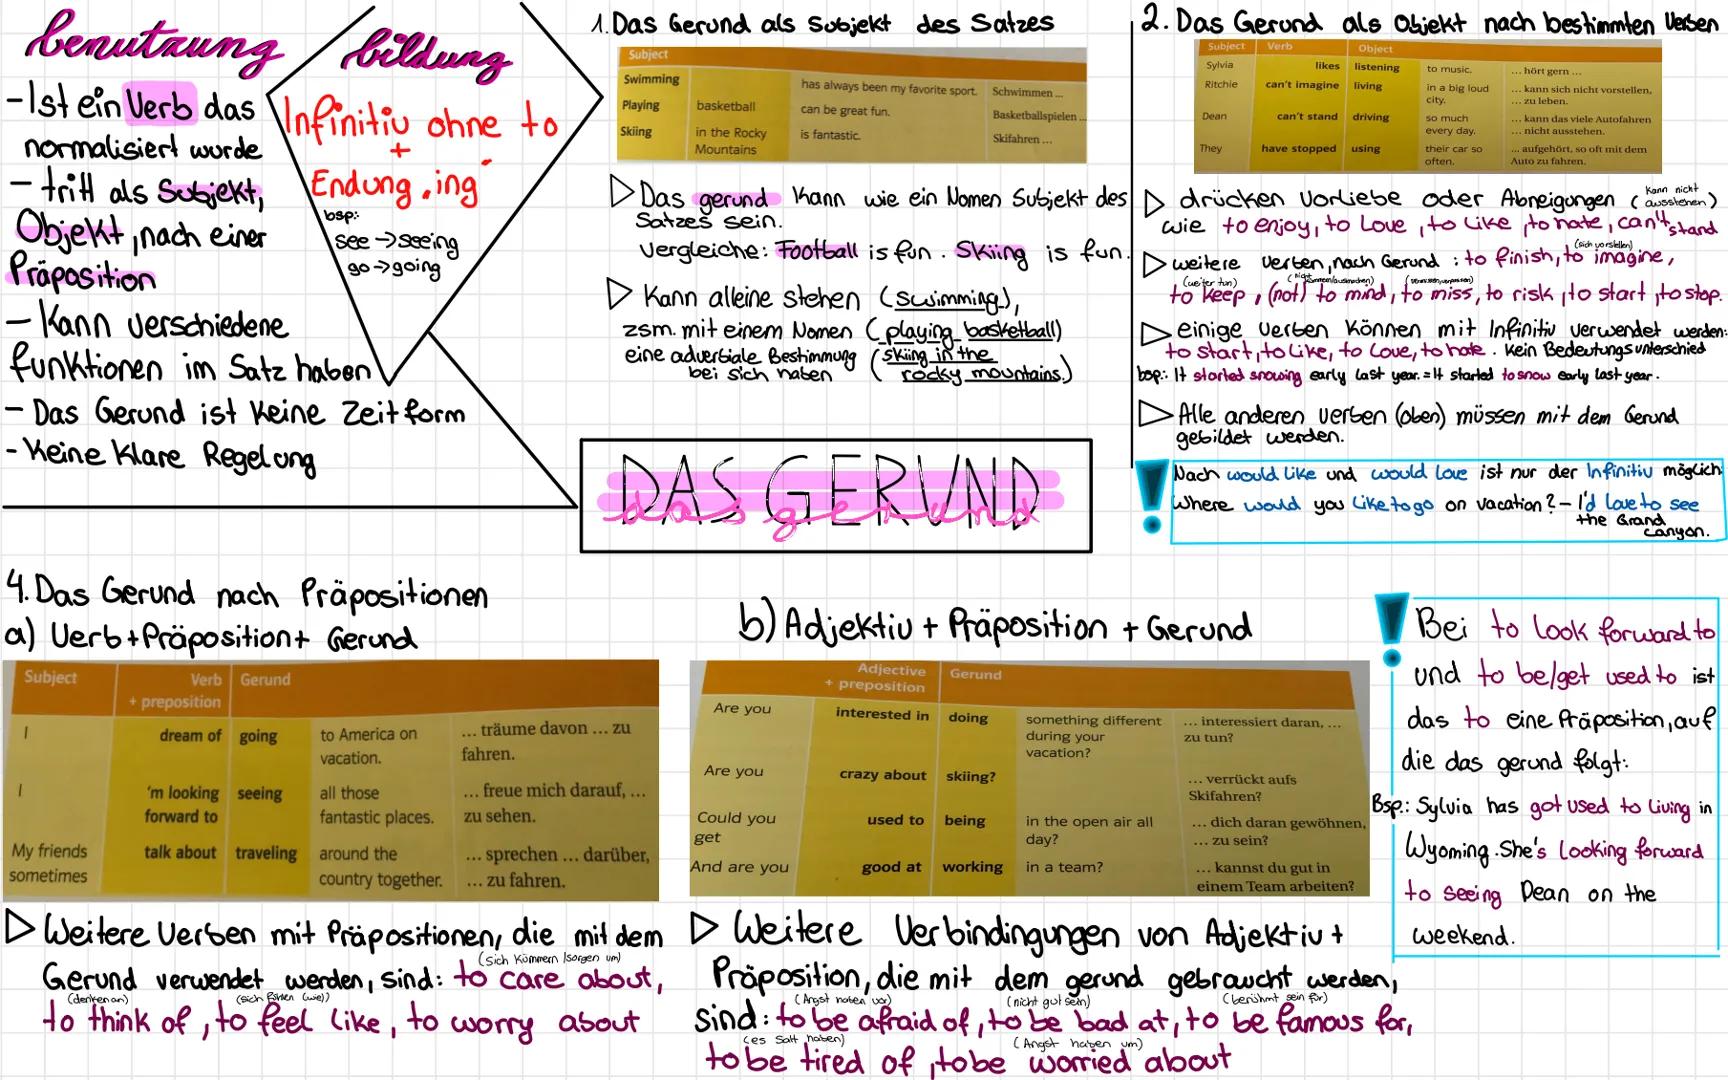 benutzung
-Ist ein Verb das
normalisiert wurde
- tritt als Subjekt,
Objekt, nach einer
Präposition
- Kann verschiedene
funktionen im Satz haben
- Das Gerund ist Keine Zeitform
- Keine Klare Regelung
bildung
Infinitiv ohne to
+
Endung „ing"
bsp:
see → seeing
go → going
1. Das Gerund als Subjekt des Satzes
Subject
Swimming has always been my favorite sport. Schwimmen ...
Playing basketball can be great fun. Basketballspielen ...
Skiing in the Rocky is fantastic. Skifahren ...
Mountains
▷ Das gerund Kann wie ein Nomen Subjekt des
Satzes sein.
Vergleiche: Football is fun. Skiing is fun.
▷ Kann alleine stehen (swimming),
zsm. mit einem Nomen (playing basketball)
eine adverbiale Bestimmung (skiing in the
bei sich haben rocky mountains.)
DAS GERUND
das gerund
2. Das Gerund als Objekt nach bestimmten Verben
Subject Verb Object
Sylvia likes listening to music. ... hört gern ...
Ritchie can't imagine living in a big loud ... kann sich nicht vorstellen,
city. ... zu leben.
Dean can't stand driving so much ... kann das viele Autofahren
every day. ... nicht ausstehen.
They have stopped using their car so ... aufgehört, so oft mit dem
often. Auto zu fahren.
▷ drücken Vorliebe oder Abneigungen (Kann nicht
ausstehen)
wie to enjoy, to Love, to Like, to hate, can't stand
(sich vorstellen)
▷ weitere verben, nach Gerund: to finish, to imagine,
(weiter tun)
to keep, (not) to mind, to miss, to risk, to start, to stop.
▷ einige verben Können mit Infinitiv verwendet werden:
to start, to Like, to Love, to hate. Kein Bedeutungsunterschied
bsp.: It started snowing early last year. = It started to snow early last year.
▷ Alle anderen verben (oben) müssen mit dem Gerund
gebildet werden.
! Nach would like und would love ist nur der Infinitiv möglich
Where would you Like to go on vacation? - I'd love to see
the Grand
Canyon.
4. Das Gerund nach Präpositionen
a) Verb + Präposition + Gerund
Subject Verb Gerund
+ preposition
I dream of going to America on ... träume davon ... zu
vacation. fahren.
I 'm looking seeing all those ... freue mich darauf, ...
forward to fantastic places. zu sehen.
My friends talk about traveling around the ... sprechen ... darüber,
sometimes country together. ... zu fahren.
▷ Weitere Verben mit Präpositionen, die mit dem
(sich Kümmern/sorgen um)
Gerund verwendet werden, sind: to care about,
(denken an) (sich fühlen (wie))
to think of, to feel like, to worry about
b) Adjektiv + Präposition + Gerund
Adjective Gerund
+ preposition
Are you interested in doing something different ... interessiert daran, ...
during your zu tun?
vacation?
Are you crazy about skiing? ... verrückt aufs
Skifahren?
Could you used to being in the open air all ... dich daran gewöhnen,
get day? ... zu sein?
And are you good at working in a team? ... kannst du gut in
einem Team arbeiten?
▷ Weitere Verbindungen von Adjektiv +
Präposition, die mit dem gerund gebraucht werden,
(Angst haben vor) (nicht gut sein) (berühmt sein für)
sind: to be afraid of, to be bad at, to be famous for,
(es satt haben) (Angst haben um)
to be tired of, to be worried about
! Bei to look forward to
und to be/get used to ist
das to eine Präposition, auf
die das gerund folgt:
Bsp.: Sylvia has got used to Living in
Wyoming. She's Looking forward
to seeing Dean on the
weekend.